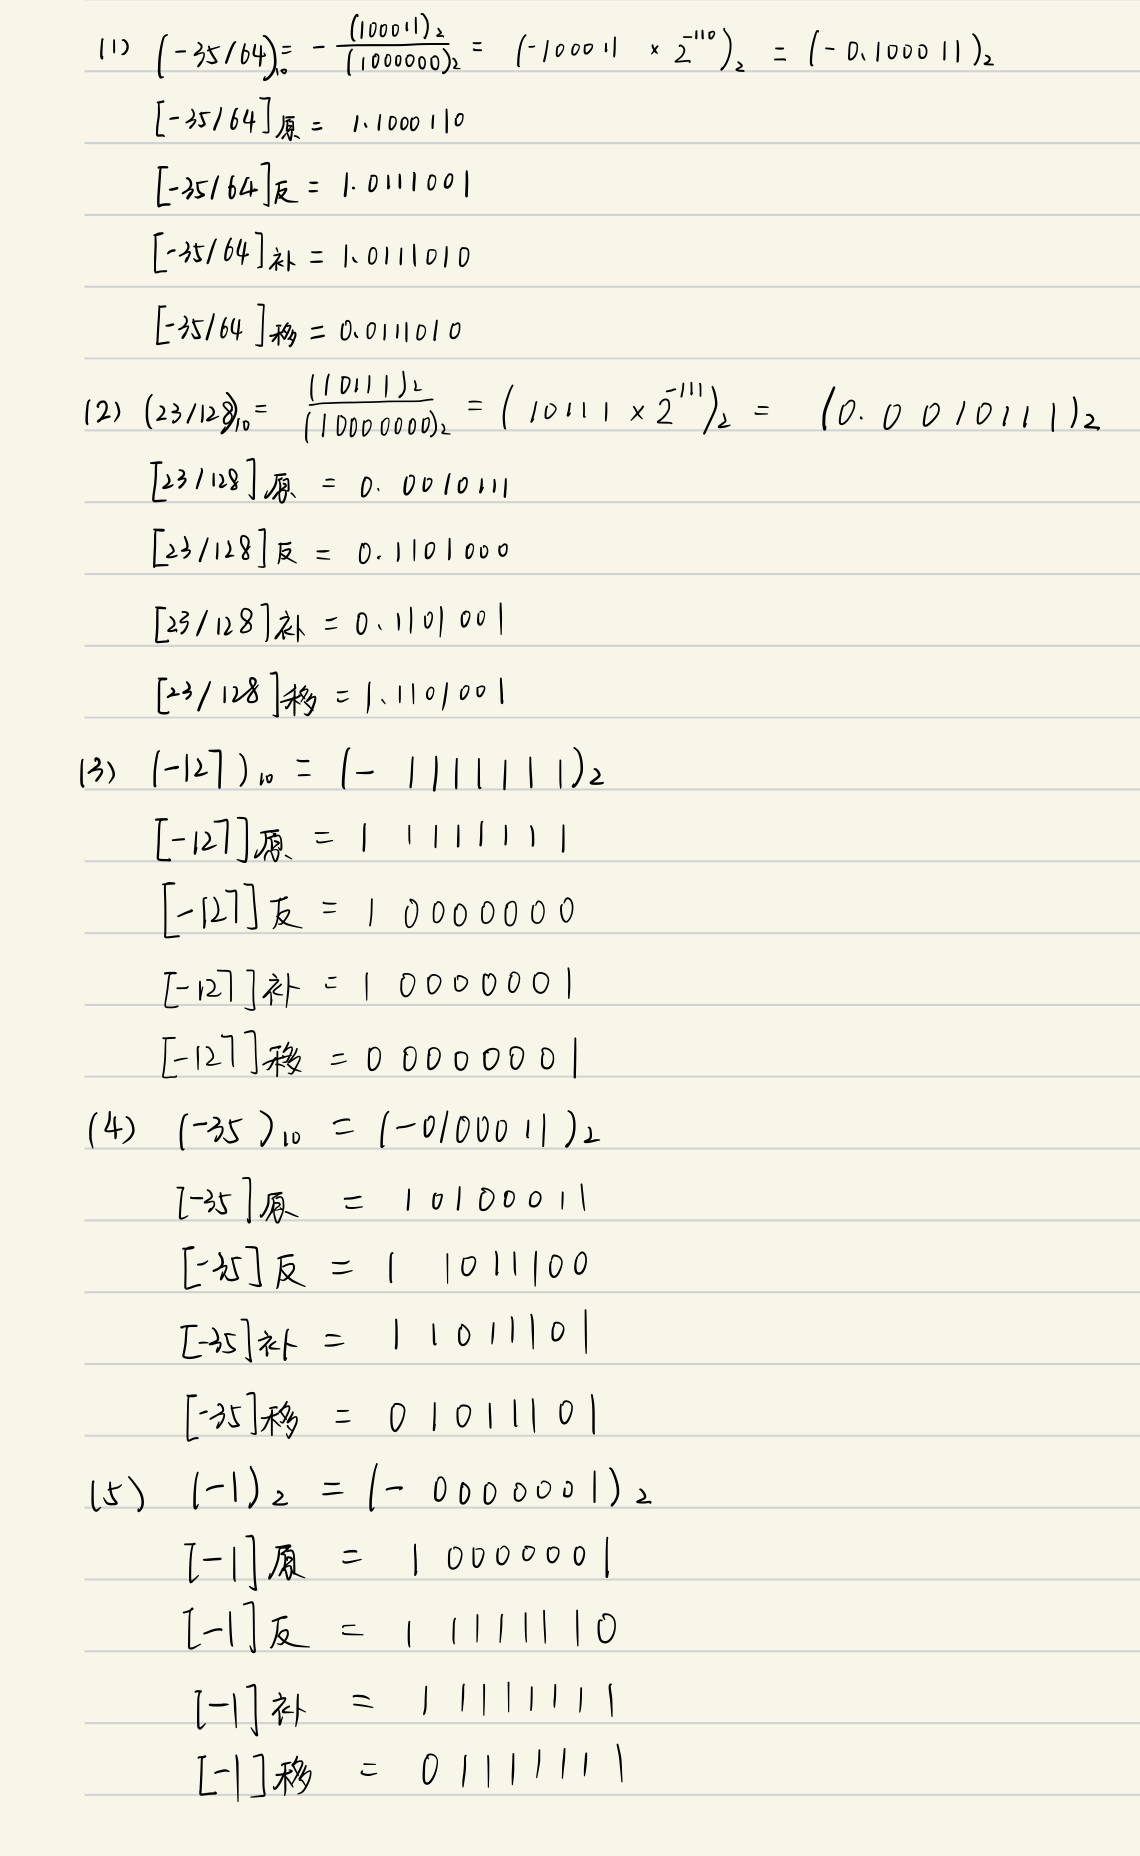 (1) (-35/64)₁₀ = - (100011)₂/(1000000)₂ = (-100011 × 2^-110)₂ = (-0.100011)₂
[-35/64]原 = 1.1000110
[-35/64]反 = 1.0111001
[-35/64]补 = 1.0111010
[-35/64]移 = 0.0111010
(2) (23/128)₁₀ = (10111)₂/(10000000)₂ = (10111 × 2^-111)₂ = (0.0010111)₂
[23/128]原 = 0.0010111
[23/128]反 = 0.1101000
[23/128]补 = 0.1101001
[23/128]移 = 1.1101001
(3) (-127)₁₀ = (-1111111)₂
[-127]原 = 1 1111111
[-127]反 = 1 0000000
[-127]补 = 1 0000001
[-127]移 = 0 0000001
(4) (-35)₁₀ = (-0100011)₂
[-35]原 = 10100011
[-35]反 = 1 1011100
[-35]补 = 11011101
[-35]移 = 01011101
(5) (-1)₂ = (-0000001)₂
[-1]原 = 1 0000001
[-1]反 = 1 1111110
[-1]补 = 1 1111111
[-1]移 = 0 1111111